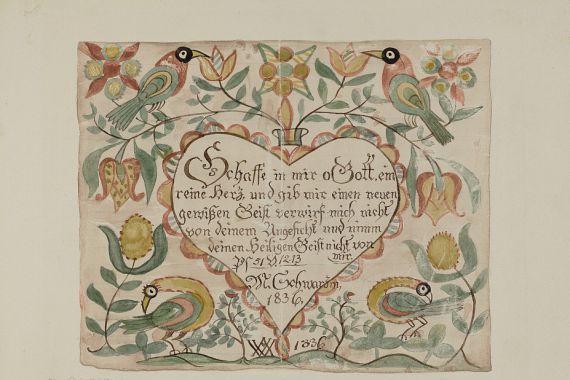 Schaffe in mir o Gott, ein
reine Herz, und gib mir einen neuen
gewißen Geist verwirf mich nicht
von deinem Angesicht und nimm
deinen Heiligen Geist nicht von
mir.
Ps 51 V 12 13
1836.
1836